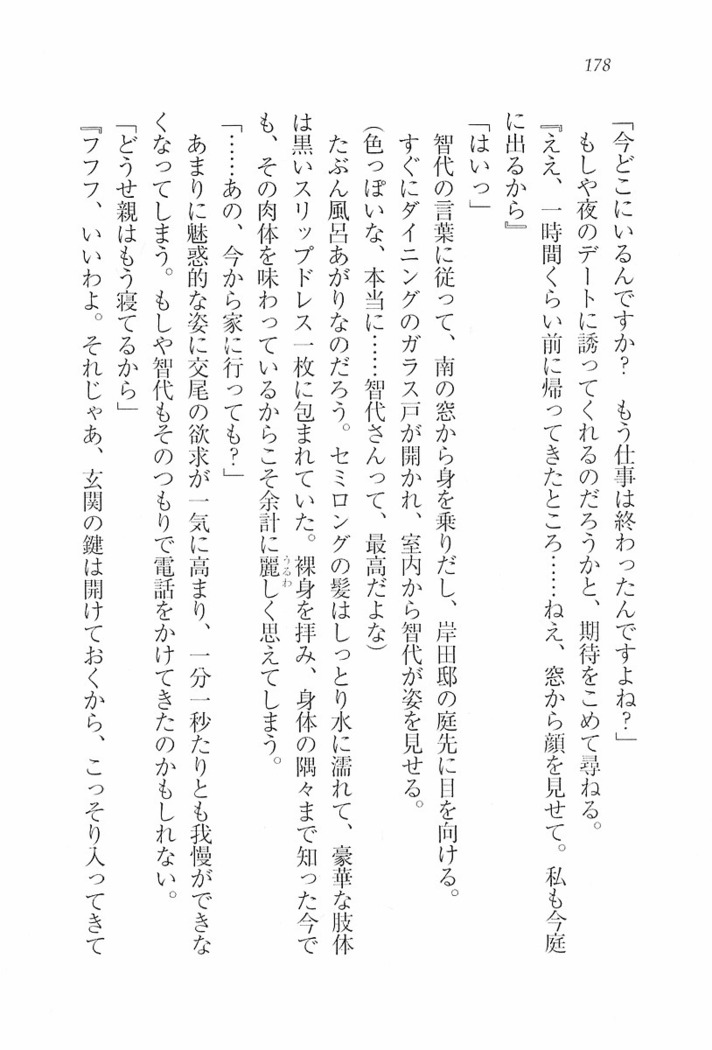 178
「今どこにいるんですか？　もう仕事は終わったんですよね？」
　もしや夜のデートに誘ってくれるのだろうかと、期待をこめて尋ねる。
『ええ、一時間くらい前に帰ってきたところ……ねえ、窓から顔を見せて。私も今庭
に出るから』
「はいっ」
　智代の言葉に従って、南の窓から身を乗りだし、岸田邸の庭先に目を向ける。
すぐにダイニングのガラス戸が開かれ、室内から智代が姿を見せる。
（色っぽいな、本当に……智代さんって、最高だよな）
　たぶん風呂あがりなのだろう。セミロングの髪はしっとり水に濡れて、豪華な肢体
は黒いスリップドレス一枚に包まれていた。裸身を拝み、身体の隅々まで知った今で
も、その肉体を味わっているからこそ余計に麗うるわしく思えてしまう。
「……あの、今から家に行っても？」
　あまりに魅惑的な姿に交尾の欲求が一気に高まり、一分一秒たりとも我慢ができな
くなってしまう。もしや智代もそのつもりで電話をかけてきたのかもしれない。
「どうせ親はもう寝てるから」
『フフフ、いいわよ。それじゃあ、玄関の鍵は開けておくから、こっそり入ってきて